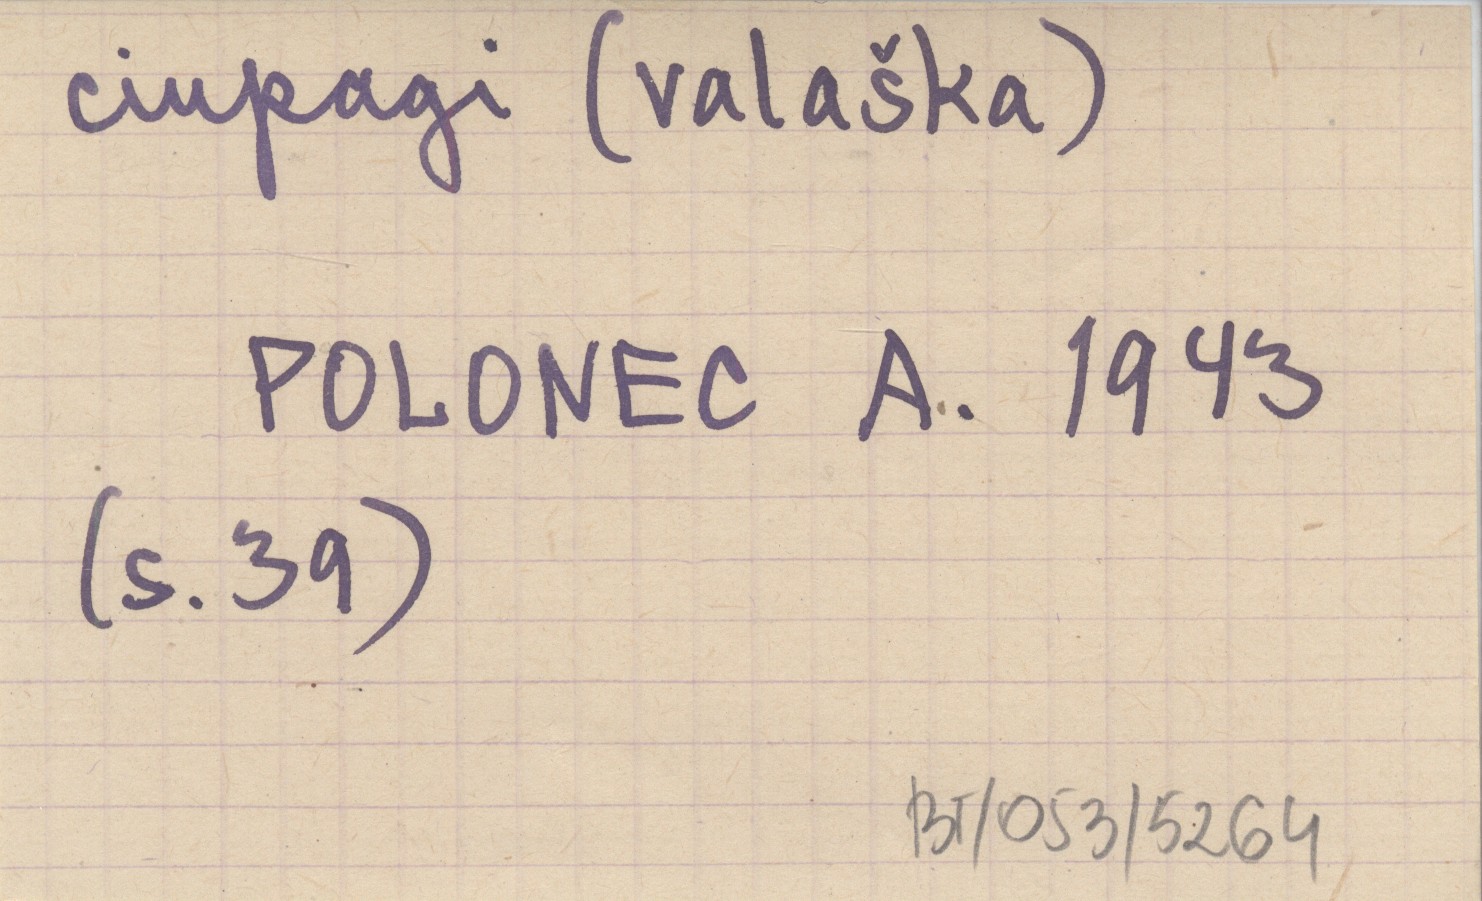 ciupagi (valaška)
POLONEC A. 1943
(s.39)
BT/053/5264